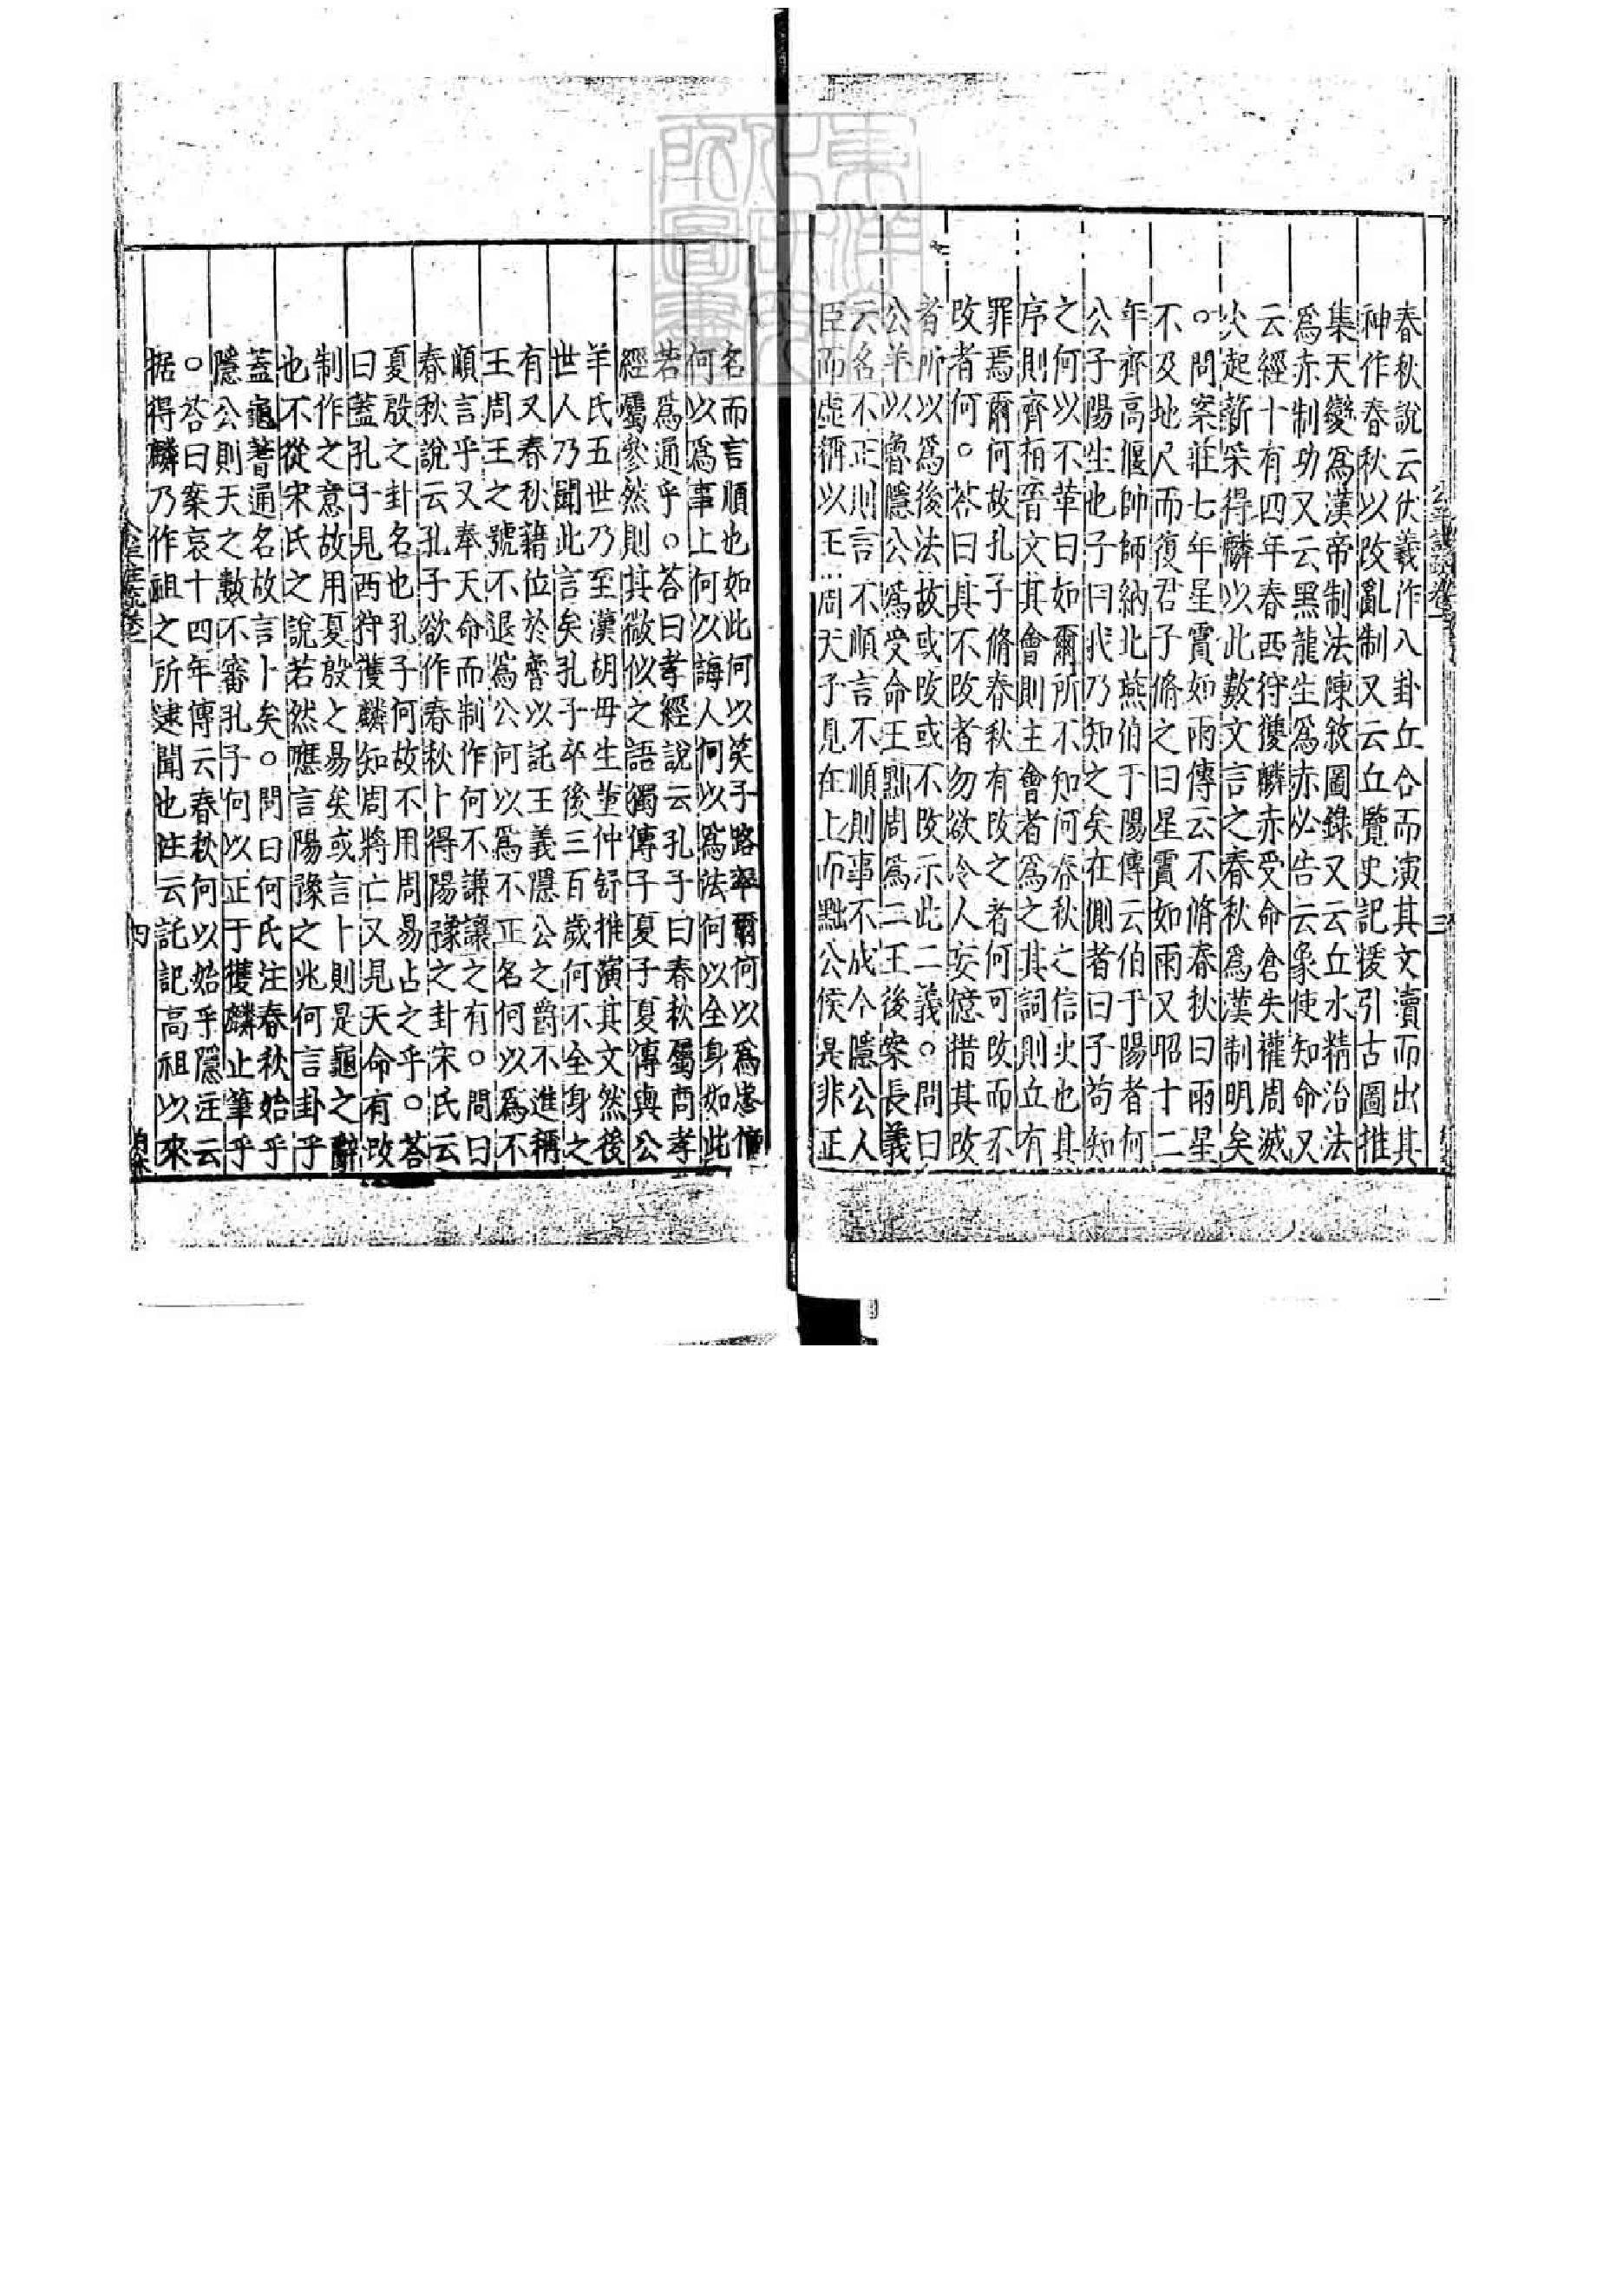 春秋說云伏羲作八卦丘合而演其文瀆而出其
神作春秋以改亂制又云丘覽史記援引古圖推
集天變爲漢帝制法陳敘圖錄又云丘水精治法
爲赤制功又云黑龍生爲赤必告云象使知命又
云經十有四年春西狩獲麟赤受命倉失權周滅
火起薪采得麟以此數文言之春秋爲漢制明矣
○問案莊七年星霣如雨傳云不脩春秋曰雨星
不及地尺而復君子脩之曰星霣如雨又昭十二
年齊高偃帥師納北燕伯于陽傳云伯于陽者何
公子陽生也子曰我乃知之矣在側者曰子苟知
之何以不革曰如爾所不知何春秋之信史也其
序則齊桓晉文其會則主會者爲之其詞則丘有
罪焉爾何故孔子脩春秋有改之者何可改而不
改者何○荅曰其不改者勿欲令人妄億措其改
者所以爲後法故或改或不改示此二義○問曰
公羊以魯隱公爲受命王黜周爲二王後案長義
云名不正則言不順言不順則事不成今隱公人
臣而虛稱以王周天子見在上而黜公侯是非正
公羊註疏卷一
三
名而言順也如此何以笑子路率爾何以爲忠信
何以爲事上何以誨人何以爲法何以全身如此
若爲通乎○荅曰孝經說云孔子曰春秋屬商孝
經屬參然則其微似之語獨傳子夏子夏傳與公
羊氏五世乃至漢胡毋生董仲舒推演其文然後
世人乃聞此言矣孔子卒後三百歲何不全身之
有又春秋藉位於魯以託王義隱公之爵不進稱
王周王之號不退爲公何以爲不正名何以爲不
順言乎又奉天命而制作何不謙讓之有○問曰
春秋說云孔子欲作春秋卜得陽豫之卦宋氏云
夏殷之卦名也孔子何故不用周易占之乎○荅
曰蓋孔子見西狩獲麟知周將亡又見天命有改
制作之意故用夏殷之易矣或言卜則是龜之辭
也不從宋氏之說若然應言陽豫之兆何言卦乎
蓋龜蓍通名故言卜矣○問曰何氏注春秋始乎
隱公則天之數不審孔子何以正于獲麟止筆乎
○荅曰案哀十四年傳云春秋何以始乎隱注云
据得麟乃作祖之所逮聞也注云託記高祖以來
四